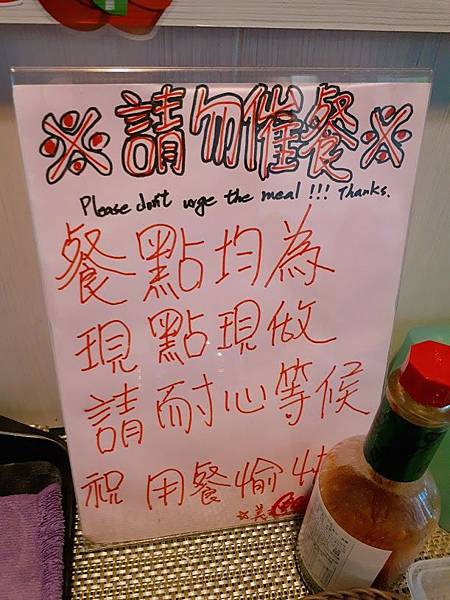 ※請勿催餐※
Please don't urge the meal !!! Thanks.
餐點均為
現點現做
請耐心等候
祝 用餐愉